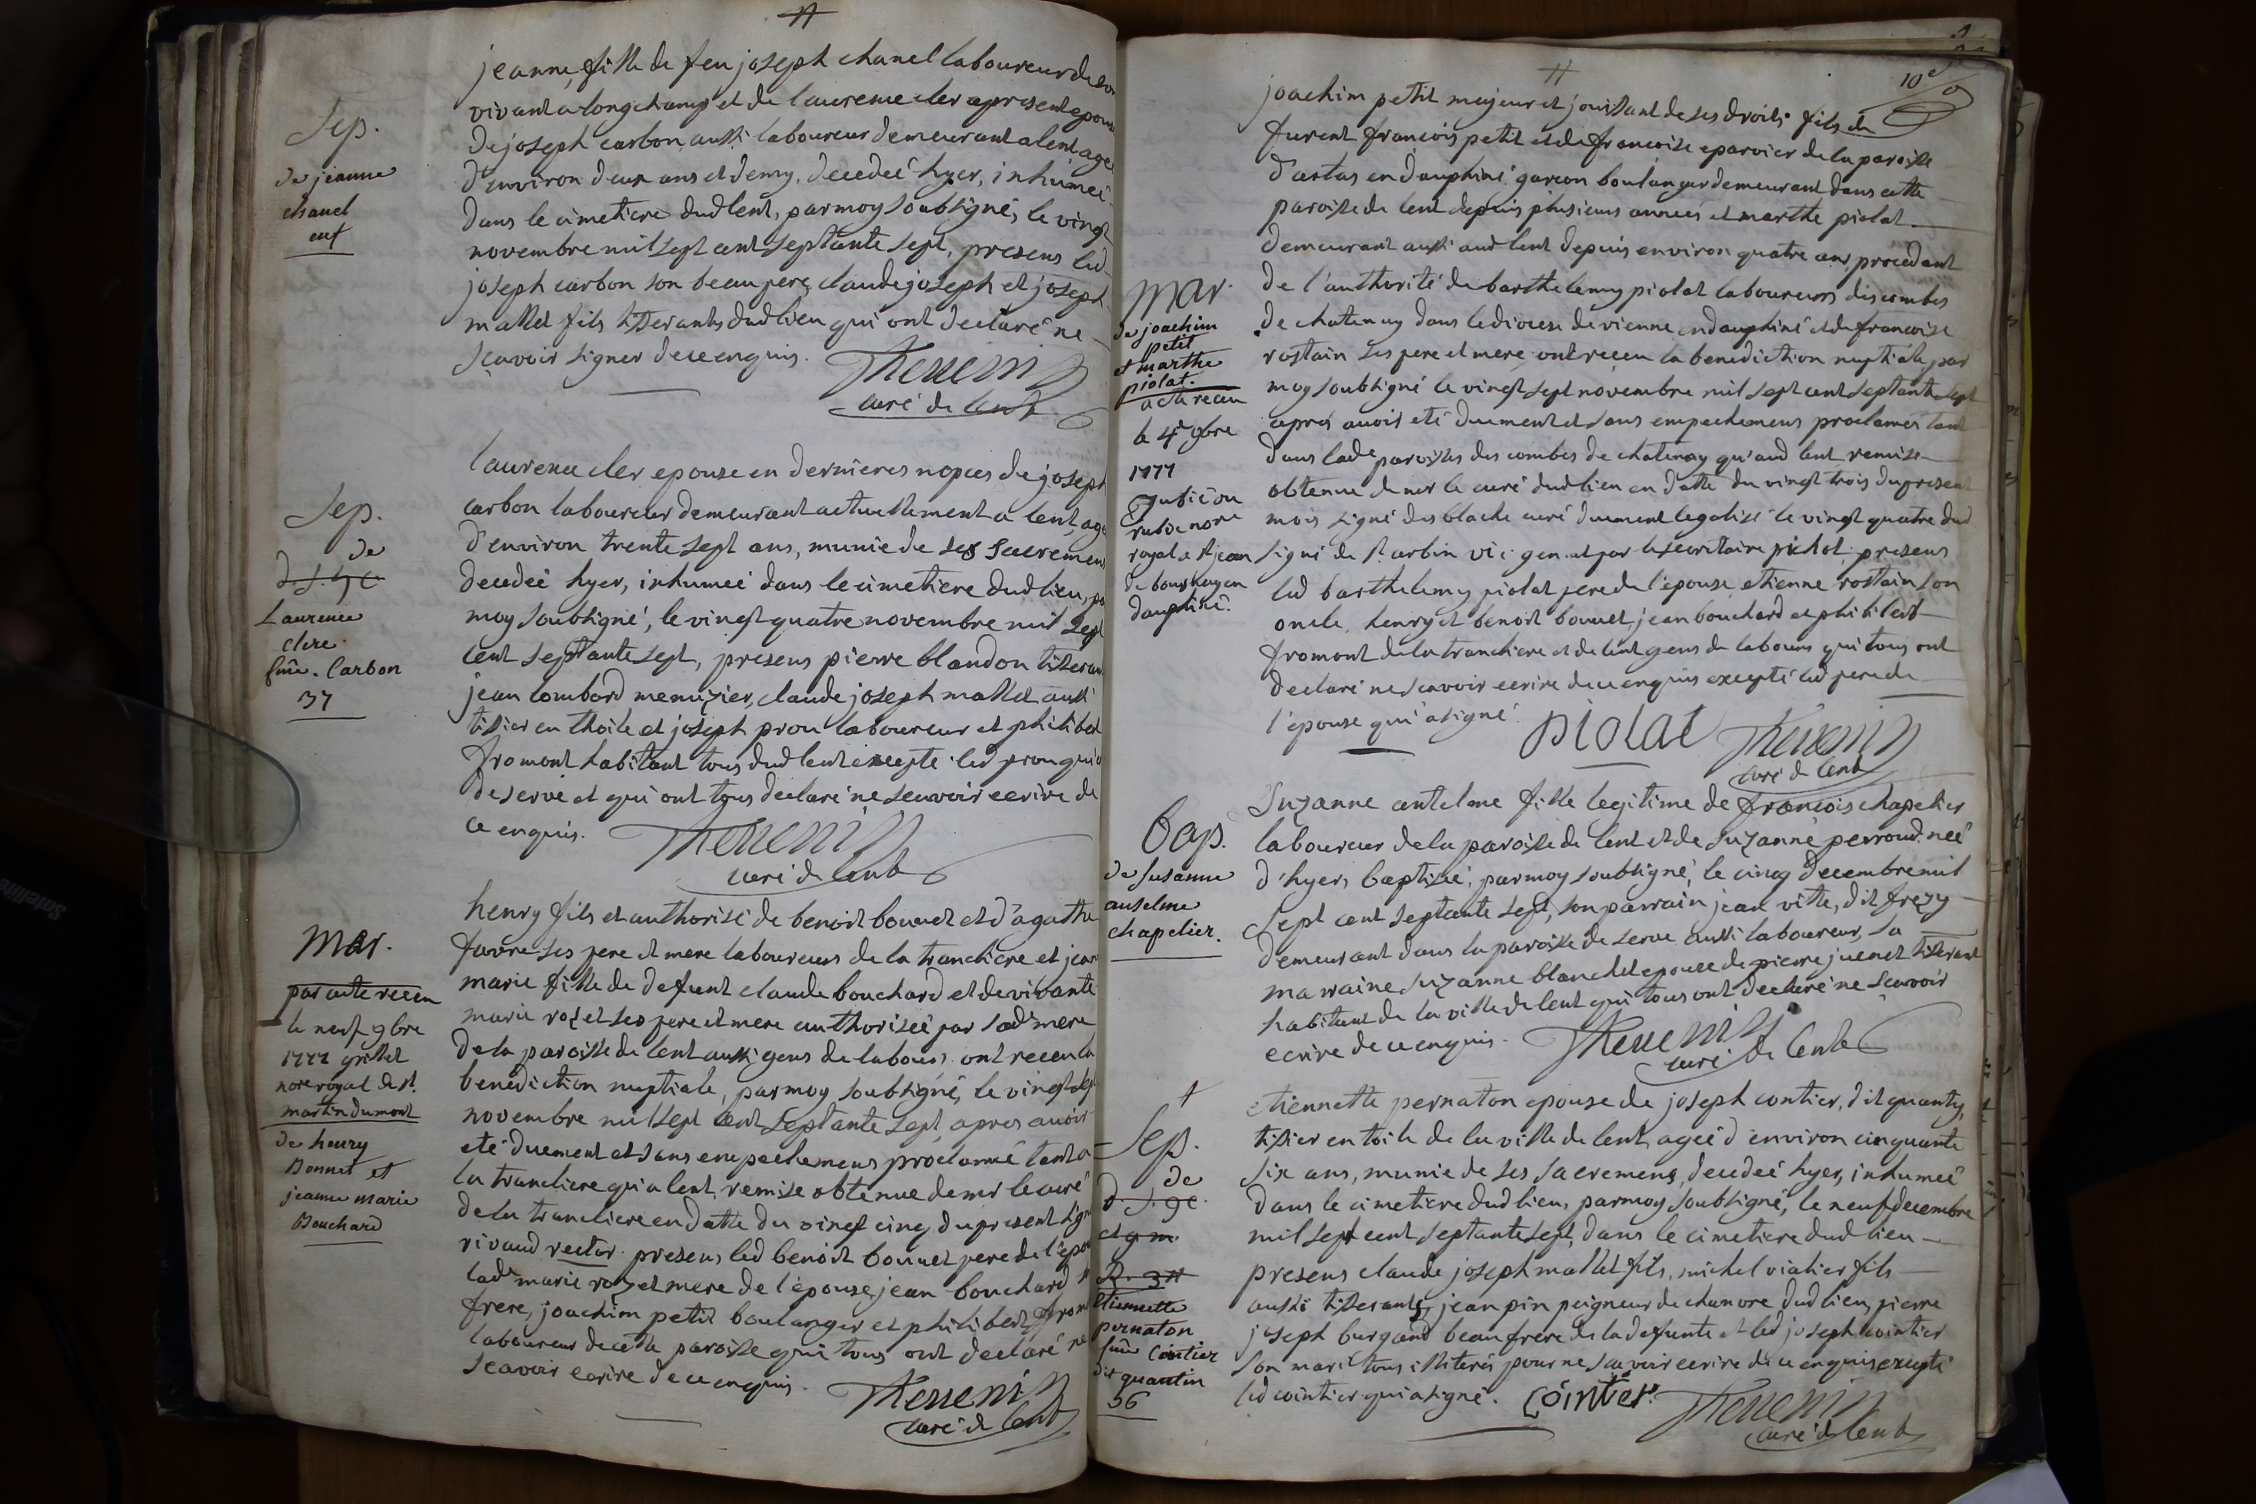 Sep.
de jeanne
chanel
enf
jeanne, fille de feu joseph chanel laboureur de son
vivant a longchamp et de laurence cler apresent epouse
de joseph carbon aussi laboureur demeurant a lent, agee
d'environ deux ans et demy, decedeé hyer, inhumeé
dans le cimetiere dud lent, par moy soubsigné, le vingt
novembre mil sept cent septante sept, presens led
joseph carbon son beaupere, claude joseph et joseph
mallet fils tisserants dud lieu qui ont declaré ne
scavoir signer de ce enquis.
Thevenin
curé de lent
Sep.
de
Laurence
clere
fme. Carbon
37
laurence cler epouse en dernieres nopces de joseph
carbon laboureur demeurant actuellement a lent, agee
d'environ trente sept ans, munie de ses sacremens
decedeé hyer, inhumeé dans le cimetiere dud lieu, par
moy soubsigné, le vingt quatre novembre mil sept
cent septante sept, presens pierre blandon tisserand
jean lombard menuzier, claude joseph mallet aussi
tissier en thoile et joseph prou laboureur et philibert
fromont habitant tous dud lent excepté led prou qui
de serve et qui ont tous declaré ne scavoir ecrire de
ce enquis.
Thevenin
curé de lent
Mar.
par acte receu
le neuf 9bre
1777 grillet
nore royal de st.
martin du mont
de henry
Bonnet et
jeanne marie
Bouchard
henry fils et authorisé de benoit bonnet et d'agathe
favre ses pere et mere laboureurs de la tranclière et jeanne
marie fille de defunt claude bouchard et de vivante
marie rozet ses pere et mere authoriseé par lade mere
de la paroisse de lent aussi gens de labeurs ont receu la
benediction nuptiale, par moy soubsigné, le vingt sept
novembre mil sept cent septante sept, apres avoir
eté duement et sans empechemens proclamé tant a
la tranclière qu'a lent, remise obtenue de mr le curé
de la tranclière en datte du vingt cinq du present signé
rivaud rector. presens led benoit bonnet pere de l'epoux
lade marie rozet mere de l'epouse, jean bouchard son
frere, joachim petit boulanger et philibert fromont
laboureur de cette paroisse qui tous ont declaré ne
scavoir ecrire de ce enquis.
Thevenin
curé de lent
10e
Mar.
de joachim
petit
et marthe
piolat.
acte receu
le 4e 9bre
1777
nore
royal a st jean
de bournay en
dauphiné.
joachim petit majeur et jouissant de ses droits fils de
furent francois petit et de francoise eparvier de la paroisse
d'artas en dauphiné garcon boulanger demeurant dans cette
paroisse de lent depuis plusieurs anneés et marthe piolat
demeurant aussi aud lent depuis environ quatre ans, procedant
de l'authorité de barthelemy piolat laboureurs des combes
de chatenay dans le diocese de vienne en dauphiné et de francoise
rostain ses pere et mere, ont receu la benediction nuptiale, par
moy soubsigné le vingt sept novembre mil sept cent septante sept
apres avoir eté duement et sans empechemens proclamés tant
dans lade paroisses des combes de chatenay qu'aud lent remise
obtenue de mr le curé dud lieu en datte du vingt trois du present
mois signé desblache curé duement legalisé le vingt quatre dud
signé de st. arbin vic gen. et par le secretaire pichot. presens
led barthelemy piolat pere de l'epouse, etienne rostain son
oncle, henry et benoit bonnet, jean bouchard et philibert
fromont de la tranclière et de lent gens de labeurs qui tous ont
declaré ne scavoir ecrire de ce enquis excepté led pere de
l'epouse qui a signé.
piolat
Thevenin
curé de lent
Bap.
de susanne
anselme
chapelier.
Suzanne antelme fille legitime de francois chapelier
laboureur de la paroisse de lent et de suzanne perroud. neé
d'hyer, baptiseé, par moy soubsigné, le cinq decembre mil
sept cent septante sept, son parrain jean vitte, dit frezy
demeurant dans la paroisse de serve aussi laboureur, sa
marraine suzanne blanchet epouse de pierre juenet tisserant
habitant de la ville de lent qui tous ont declaré ne scavoir
ecrire de ce enquis.
Thevenin
curé de lent
Sep.
de
etiennette
pernaton
fme Cointier
dit quantin
56
etiennette pernaton epouse de joseph contier, dit quanty,
tissier en toile de la ville de lent, ageé d'environ cinquante
six ans, munie de ses sacremens, decedeé hyer, inhumeé
dans le cimetiere dud lieu, par moy soubsigné, le neuf decembre
mil sept cent septante sept, dans le cimetiere dud lieu
presens claude joseph mallet fils, michel viatier fils
aussi tisserants, jean pin peigneur de chanvre dud lieu, pierre
joseph burgand beaufrere de la defunte et led joseph cointier
son mari tous illiterés pour ne scavoir ecrire de ce enquis excepté
led cointier qui a signé.
cointier
Thevenin
curé de lent